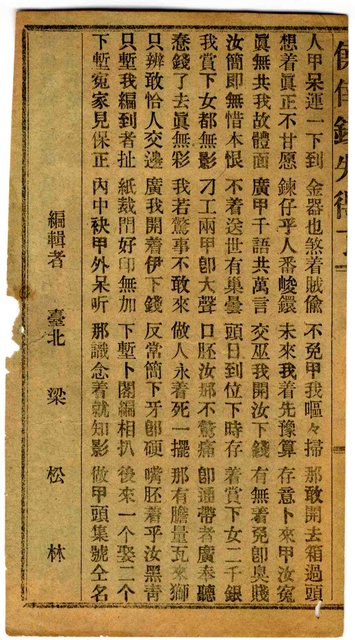 僥倖錢失得了
人甲呆運一下到 金器也煞着賊偸 不免甲我嘔々掃 那敢開去箱過頭
想着眞正不甘愿 鍊仔乎人番峻鐶 未來我着先豫算 存意卜來甲汝寃
眞無共我故體面 廣甲千語共萬言 交巫我開汝下錢 有無着堯卽臭賤
汝簡卽無惜本恨 不着送世有巢曇 頭日到位下時存 着賞下女二千銀
我賞下女都無影 刁工兩甲卽大聲 口胚汝鄉不驚痛 卽通帶者廣奉聽
惷錢了去眞無彩 我若驚事不敢來 做人永着死一擺 那有膽量瓦來獅
只辨敢恰人交邊 廣我開着伊下錢 反常簡下牙卽硬 嘴胚着乎汝黑靑
只蹔我編到者扯 紙裁門好印無加 下蹔卜閣編相扒 後來一个娶二个
下蹔寃家見保正 內中袂甲外呆听 那識念着就知影 做甲頭集號仝名
編輯者 臺北 梁松林